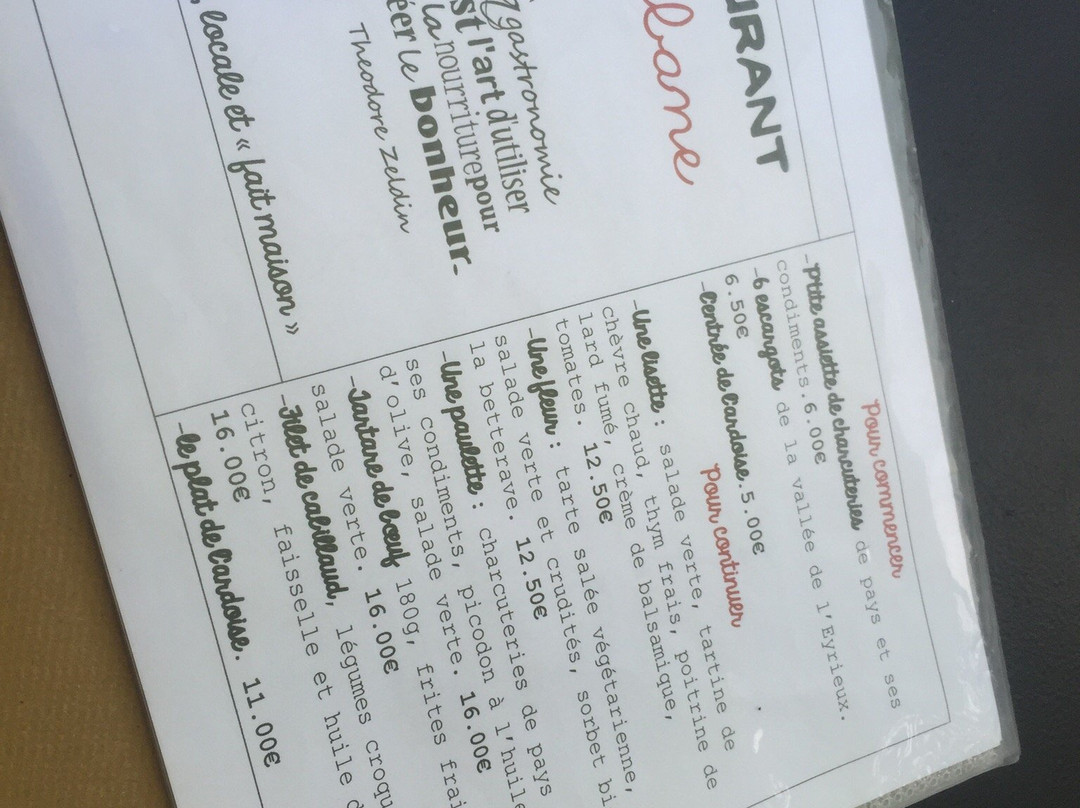 URANT
bane
gastronomie
st l'art d'utiliser
la nourriture pour
éer le bonheur.
Theodore Zeldin
, locale et « fait maison »
Pour commencer
-Ptite assiette de charcuteries de pays et ses
condiments.6.00€
-6 escargots de la vallée de l'Eyrieux.
6.50€
-L'entrée de l'ardoise. 5.00€
Pour continuer
-Une lisette : salade verte, tartine de
chèvre chaud, thym frais, poitrine de
lard fumé, crème de balsamique,
tomates. 12.50€
-Une fleur : tarte salée végétarienne,
salade verte et crudités, sorbet bi
la betterave. 12.50€
-Une paulette : charcuteries de pays
ses condiments, picodon à l'huile
d'olive, salade verte. 16.00€
-Tartare de bœuf 180g, frites frai
salade verte. 16.00€
-Filet de cabillaud, légumes croqu
citron, faisselle et huile d
16.00€
-le plat de l'ardoise. 11.00€